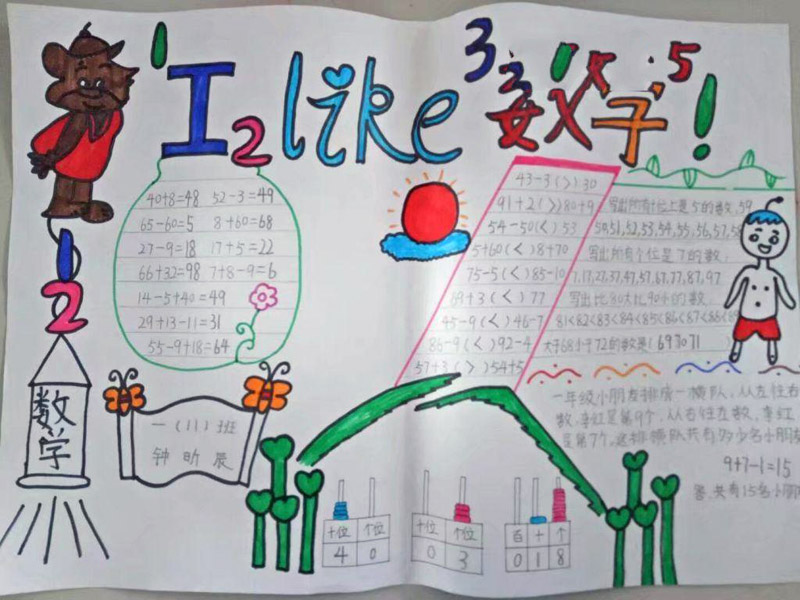 1
I
2
like
3
2
数学!
5
40+8=48 52-3=49
65-60=5 8+60=68
27-9=18 17+5=22
66+32=98 7+8-9=6
14-5+40=49
29+13-11=31
55-9+18=64
43-3(>)30
91+2(>)80+9
54-50(<)53
5+60(<)8+70
75-5(<)85-10
69+3(<)77
45-9(<)46-7
86-9(<)92-4
57+3(>)54+5
写出所有十位上是5的数. 59
50,51,52,53,54,55,56,57,58
写出所有个位是7的数.
7,17,27,37,47,57,67,77,87,97
写出比80大比90小的数.
81<82<83<84<85<86<87<88<89
大于68小于72的数是(69 70 71
1
2
数学
一(11)班
钟昕晨
一年级小朋友排成一横队,从左往右
数,李红是第9个,从右往左数,李红
是第7个,这排横队共有多少名小朋友
9+7-1=15
答:共有15名小朋
十位 个位
4 0
十位 个位
0 3
百 十 个
0 1 8